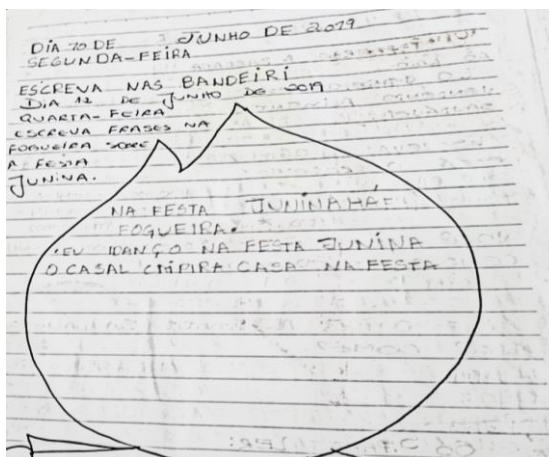 DIA 10 DE JUNHO DE 2019
SEGUNDA-FEIRA
ESCREVA NAS BANDEIRI
DIA 12 DE JUNHO DE 2019
QUARTA-FEIRA
ESCREVA FRASES NA
FOGUEIRA SOBRE
A FESTA
JUNINA.
NA FESTA JUNINA HÁ
FOGUEIRA.
EU DANÇO NA FESTA JUNINA
O CASAL CAIPIRA CASA NA FESTA